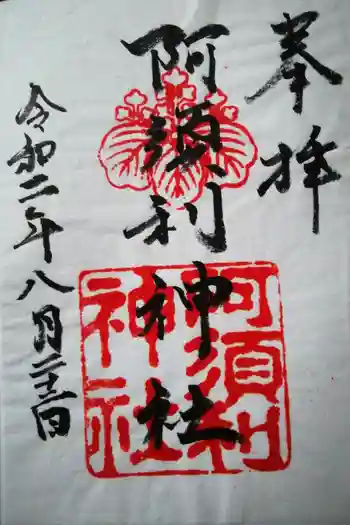 奉拝
阿須利神社
阿須利神社
令和二年八月二十三日